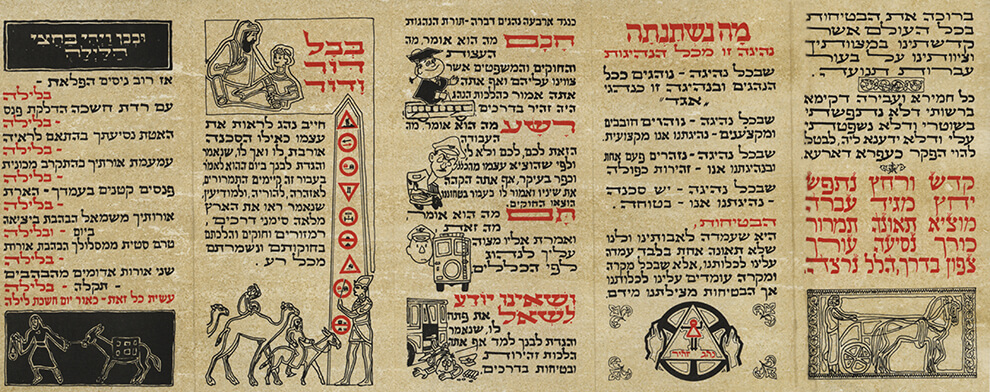 ברוכה את הבטיחות
בכל העולם אשר
קדישתינו במצוותיך
וציוותינו על בעור
עברות דתנועה.
כל חמירא ועבירה דקימא
ברשותי דלא
בשוטרי ודלא נשפטתי
עלי ודלא ידענא ליה, לבטל
להוי הפקר כעפרא דארעא
קדש ורחץ נתפש
יחץ מגיד עברה
מוציא תאונה תמרור
כורך נסיעה, עורך
צפון בדרך, הלל נרצה.
מה נשתנתה
נהיגה זו מכל הנהיגות
שבכל נהיגה - נוהגים ככל
הנהגים ובנהיגה זו כנהגי
"אגד"
שבכל נהיגה - נוהגים חובבים
ומקצועים - נהיגתנו אנו מקצועית.
שבכל נהיגה - נזהרים פעם אחת
ובנהיגתנו אנו - זהירות כפולה
שבכל נהיגה - יש סכנה
- נהיגתנו אנו - בטוחה.
הבטיחות,
היא שעמדה לאבותינו וכלנו
שלא תאונה אחת בלבד עמדה
עלינו לכלותנו, אלא שבכל מקרה
ומקרה עומדים עלינו לכלותנו
אך הבטיחות מצילתנו מידם.
נהג זהיר
כנגד ארבעה נהגים דברה - תורת הנהגות
חכם מה הוא אומר, מה
העצות
והחוקים והמשפטים אשר
צווינו עליהם ואף אתה
אתה אמור כהלכות הנהג
היה זהיר בדרכים.
רשע מה הוא אומר, מה
העבודה
הזאת לכם, לכם ולא לו
ולפי שהוציא עצמו מהנהגים
וכפר בעיקר, אף אתה הקהה
את שיניו ואמור לו בעבור בטחונו
הוצאו החוקים.
תם מה הוא אומר
מה זאת,
ואמרת אליו מצוה
עליך לנהוג
לפי הכללים
ושאינו יודע
לשאל את פתח
לו, שנאמר
והגדת לבנך למד אף אתה
הלכות זהירות,
ובטיחות בדרכים.
בכל
דור
ודור
חייב נהג לראות את
עצמו כאילו הסכנה
אורבת, לו ואך לו, שנאמר
והגדת לבנך ביום ההוא לאמר
בעבור זה קוימים התמרורים,
לאזהרה, להוריה, ולמודיעין,
שנאמר ראו את הארץ
מלאה סימני דרכים,
רמזורים וחוקים והלכתם
בחוקותם ונשמרתם
מכל רע.
ובכן ויהי בחצי
הלילה
אז רוב ניסים הפלאת -
בלילה
עם רדת חשכה הדלקת פנס
- בלילה
האטת נסיעתך בהתאם לראיה
- בלילה
עמעמת אורותיך בהתקרב מכונית
- בלילה
פנסים קטנים בעמדך - הארת
- בלילה
אורותיך משמאל הבהבת ביציאה
ביום - ובלילה
טרם סטית ממסלולך הבהבת אורות
- בלילה
שני אורות אדומים מהבהבים
- תקלה - בלילה
עשית כל זאת - כאור יום חשכת לילה